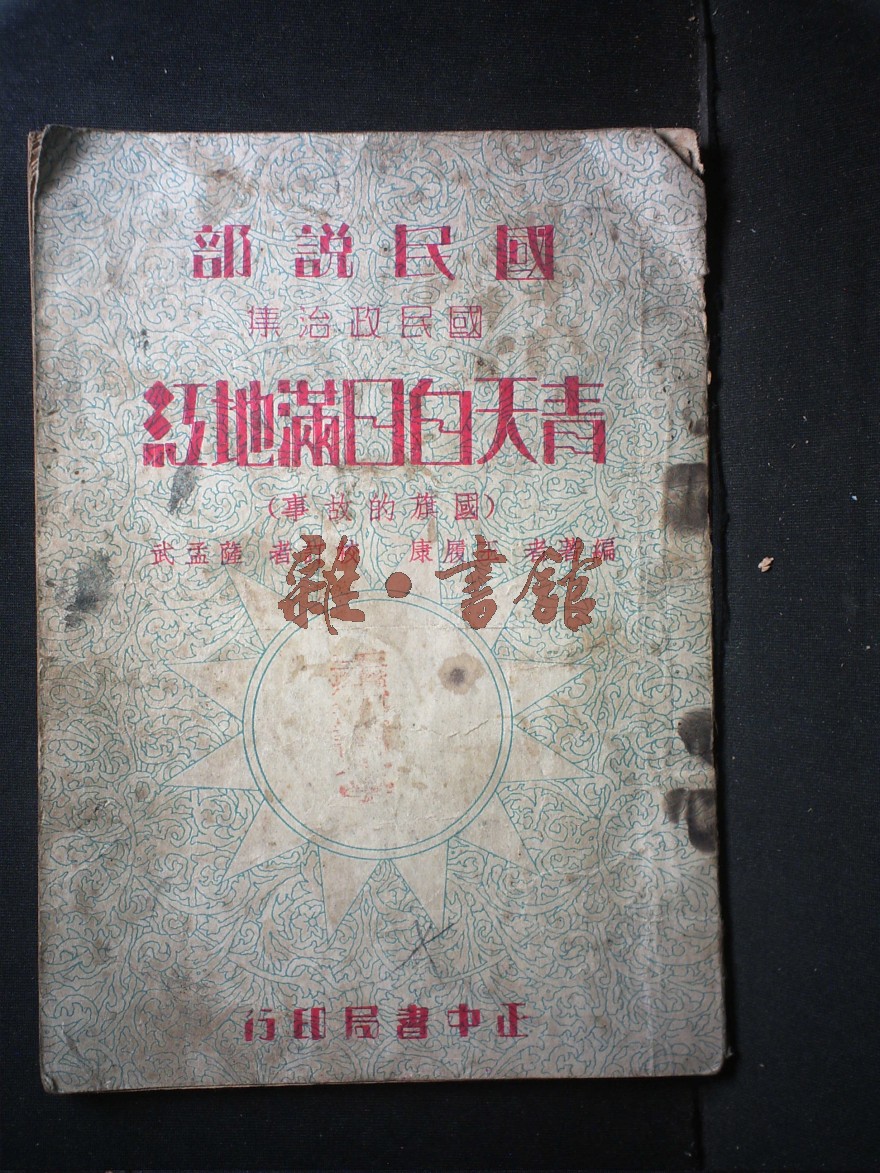 國民說部
國民政治集
青天白日滿地紅
(國旗的故事)
編著者 王履康 校訂者 薩孟武
雜·書館
正中書局印行